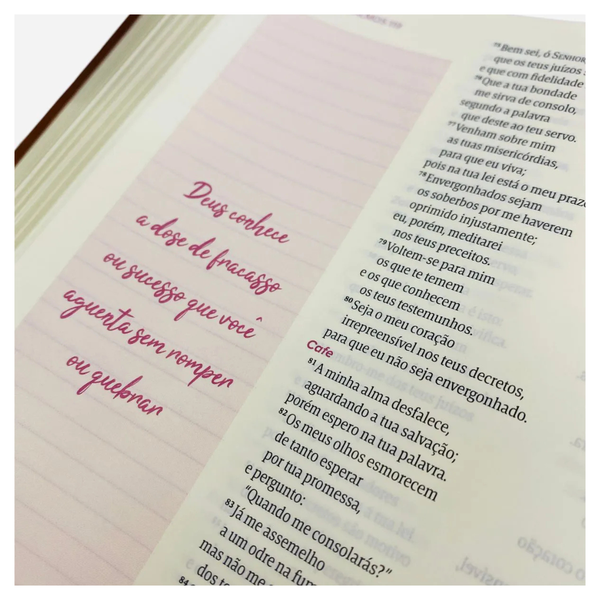 Deus conhece
a dose de fracasso
ou sucesso que você
aguenta sem romper
ou quebrar
75 Bem sei, ó SENHOR
que os teus juízos
e que com fidelidade
76 Que a tua bondade
me sirva de consolo,
segundo a palavra
que deste ao teu servo.
77 Venham sobre mim
as tuas misericórdias,
para que eu viva;
pois na tua lei está o meu praz
78 Envergonhados sejam
os soberbos por me haverem
oprimido injustamente;
eu, porém, meditarei
nos teus preceitos.
79 Voltem-se para mim
os que te temem
e os que conhecem
os teus testemunhos.
80 Seja o meu coração
irrepreensível nos teus decretos,
para que eu não seja envergonhado.
Cafe
81 A minha alma desfalece,
aguardando a tua salvação;
porém espero na tua palavra.
82 Os meus olhos esmorecem
de tanto esperar
por tua promessa,
e pergunto:
"Quando me consolarás?"
83 Já me assemelho
a um odre na fum
mas não me
dos te
84